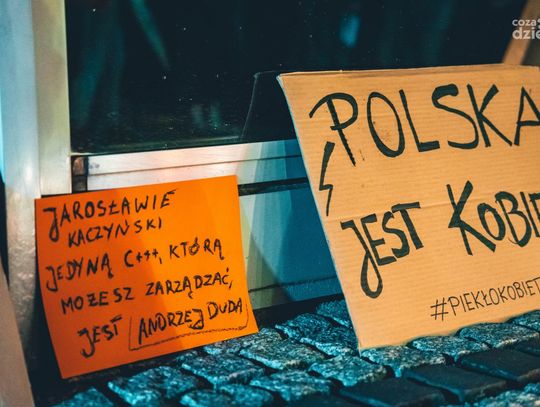 JAROSŁAWIE
KACZYŃSKI
JEDYNĄ C***, KTÓRĄ
MOŻESZ ZARZĄDZAĆ,
JEST ANDRZEJ DUDA
POLSKA
JEST KOBIE
#PIEKŁOKOBIET
COZA
dzie